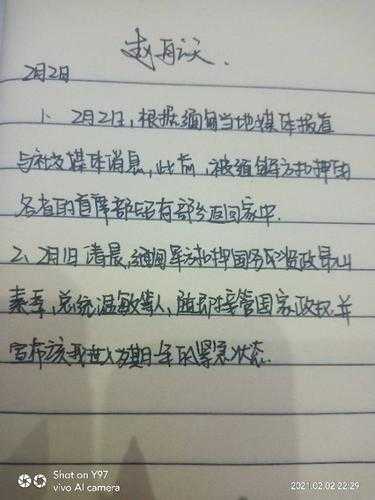 2月2日
1、2月2日,根据缅甸当地媒体报道
与社交媒体消息,此前,被缅军方扣押的
各省的首席部长有部分返回家中.
2、2月1日清晨,缅甸军方扣押国务资政昂山
素季,总统温敏等人,随即接管国家政权,并
宣布该国进入为期一年的紧急状态.
Shot on Y97
vivo AI camera
2021.02.02 22:29